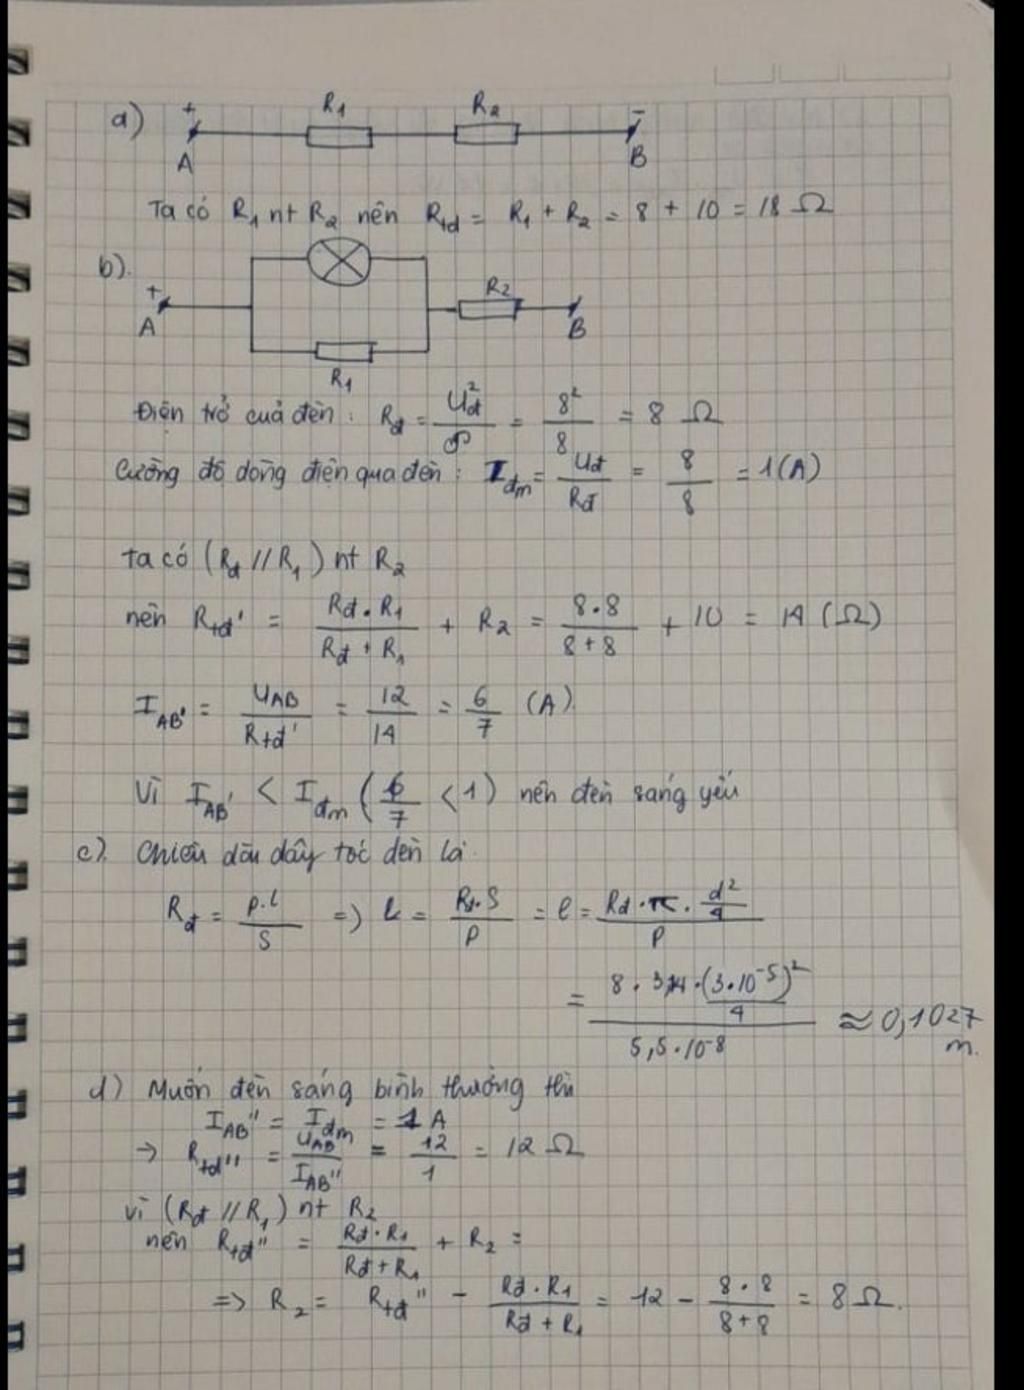 a) + A R₁ R₂ - B
Ta có R₁ nt R₂ nên Rtđ = R₁ + R₂ = 8 + 10 = 18 Ω
b). + A R₁ R₂ B
Điện trở cuả đèn : Rđ = Uđ² / 𝒫 = 8² / 8 = 8 Ω
Cường độ dòng điện qua đèn : Iđm = Uđ / Rđ = 8 / 8 = 1(A)
Ta có (Rđ // R₁) nt R₂
nên Rtđ' = Rđ . R₁ / Rđ + R₁ + R₂ = 8.8 / 8+8 + 10 = 14 (Ω)
I AB' = UAB / Rtđ' = 12 / 14 = 6 / 7 (A)
Vì I AB' < Iđm (6/7 < 1) nên đèn sáng yếu
c). Chiều dài dây tóc đèn là.
Rđ = ρ.l / S => l = Rđ.S / ρ = l = Rđ . π . d²/4 / ρ
= 8 . 3,14 . (3.10⁻⁵)² / 4 / 5,5.10⁻⁸ ≈ 0,1027 m.
d) Muốn đèn sáng bình thường thì
I AB'' = Iđm = 1 A
→ Rtđ'' = UAB / I AB'' = 12 / 1 = 12 Ω
vì (Rđ // R₁) nt R₂
nên Rtđ'' = Rđ . R₁ / Rđ + R₁ + R₂ =
=> R₂ = Rtđ'' - Rđ . R₁ / Rđ + R₁ = 12 - 8 . 8 / 8+8 = 8 Ω.